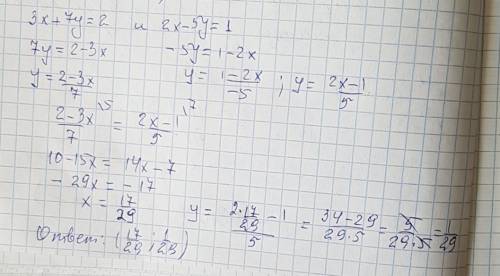 3x+7y=2 и 2x-5y=1
7y=2-3x -5y=1-2x
y=(2-3x)/7 y=(1-2x)/(-5) ; y=(2x-1)/5
(2-3x)/7 \5 = (2x-1)/5 \7
10-15x=14x-7
-29x=-17
x=17/29 y=(2·17/29-1)/5=(34-29)/(29·5)=5/(29·5)=1/29
Ответ: (17/29; 1/29)